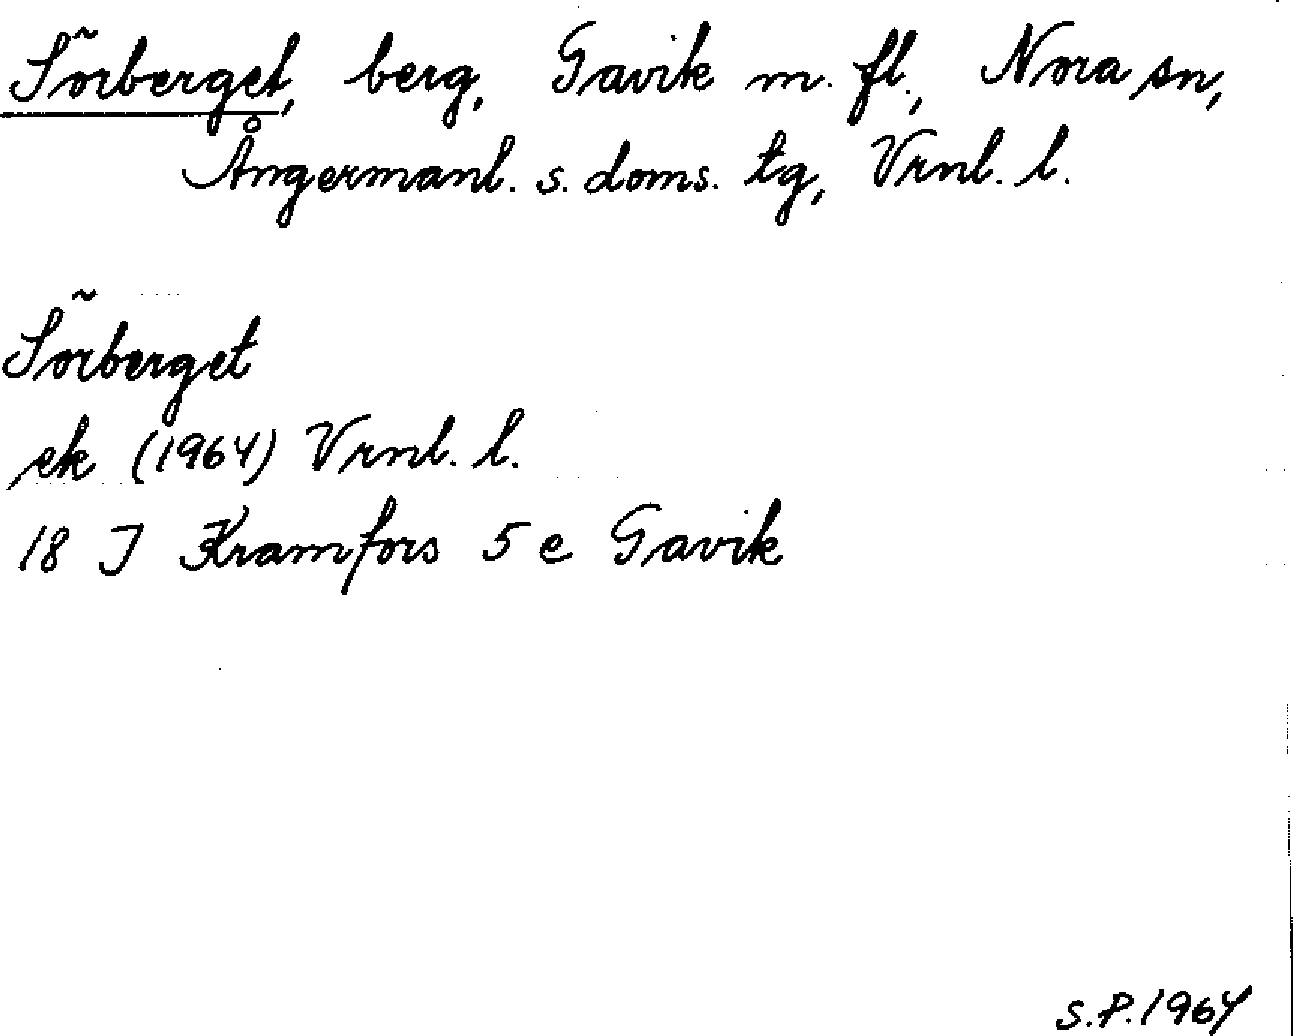 Sörberget, berg, Gavik m. fl., Nora sn,
Ångermanl. s. doms. tg, Vrnl. l.
Sörberget
ek (1964) Vrnl. l.
18 J Kramfors 5 e Gavik
S.P.1964